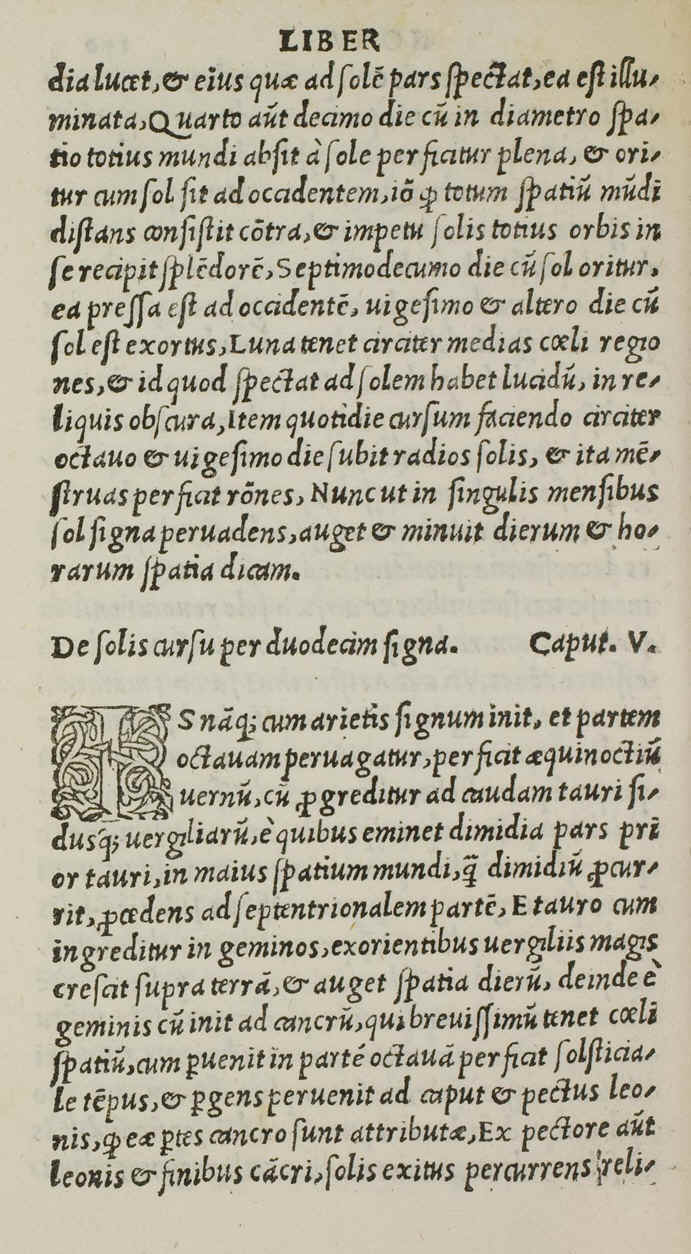 LIBER
dia lucet, & eius quæ ad solē pars spectat, ea est illu-
minata, Quarto aūt decimo die cū in diametro spa-
tio totius mundi absit à sole perficitur plena, & ori-
tur cum sol sit ad occidentem, iō ꝙ totum spatiū mūdi
distans consistit cōtra, & impetu solis totius orbis in
se recipit splēdorē, Septimodecumo die cū sol oritur,
ea pressa est ad occidentē, uigesimo & altero die cū
sol est exortus, Luna tenet circiter medias cœli regio
nes, & id quod spectat ad solem habet lucidū, in re-
liquis obscura, Item quotidie cursum faciendo circiter
octauo & uigesimo die subit radios solis, & ita mē-
struas perficit rōnes, Nunc ut in singulis mensibus
sol signa peruadens, auget & minuit dierum & ho-
rarum spatia dicam.
De solis cursu per duodecim signa. Caput. V.
IS nāq; cum arietis signum init, et partem
octauam peruagatur, perficit æquinoctiū
uernū, cū ꝓgreditur ad caudam tauri si-
dusq; uergiliarū, è quibus eminet dimidia pars pri
or tauri, in maius spatium mundi, q̄ dimidiū ꝓcur-
rit, ꝓcedens ad septentrionalem partē, E tauro cum
ingreditur in geminos, exorientibus uergiliis magis
crescit supra terrā, & auget spatia dierū, deinde è
geminis cū init ad cancrū, qui breuissimū tenet cœli
spatiū, cum ꝑuenit in partē octauā perficit solsticia-
le tēpus, & ꝑgens peruenit ad caput & pectus leo-
nis, ꝙ eæ ꝑtes cancro sunt attributæ, Ex pectore aūt
leonis & finibus cācri, solis exitus percurrens reli-